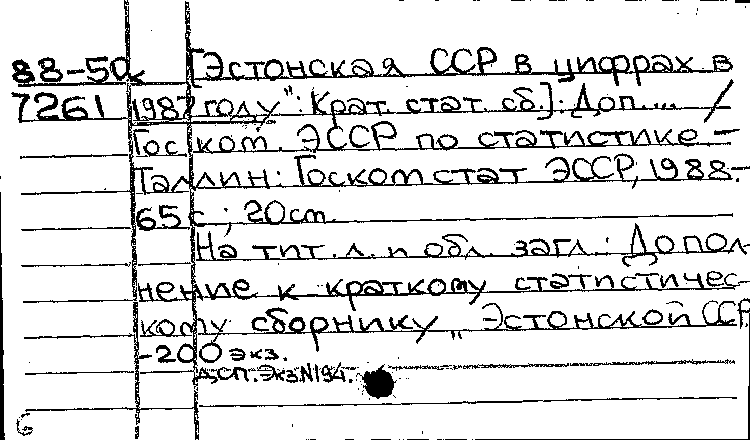 88-50к [Эстонская ССР в цифрах в
7261 1987 году": Крат. стат. сб.]: Доп.... /
Госком. ЭССР по статистике –
Таллин: Госкомстат ЭССР, 1988.-
65 с ; 20 см.
На тит. л. и обл. загл.: Допол-
нение к краткому статистичес-
кому сборнику „Эстонской ССР
-200 экз.
ДСП. Экз.N194.
6